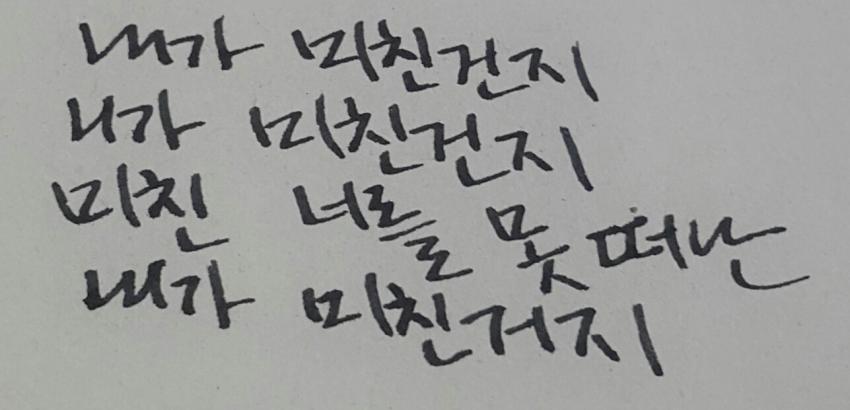 내가 미친건지
니가 미친건지
미친 너를 못 떠난
내가 미친거지